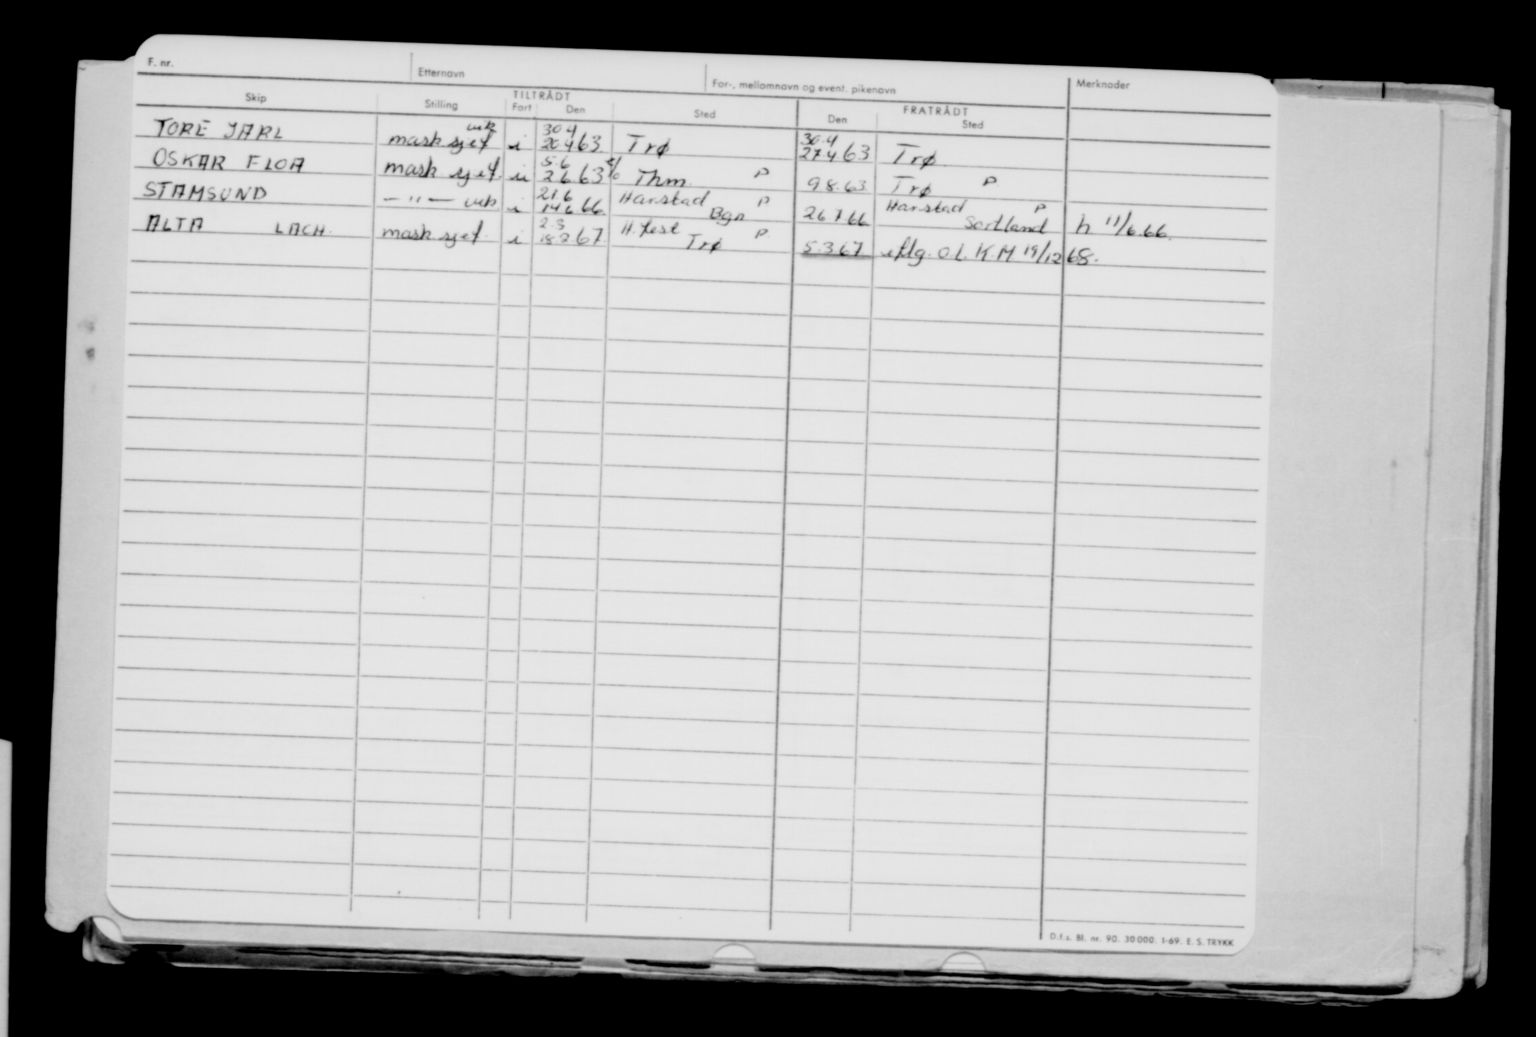 F. nr. Etternavn For-, mellomnavn og event. pikenavn Merknader
Skip Stilling TILTRÅDT Fart Den Sted FRATRÅDT Den Sted
TORE JARL mask sjef vik i 30 4 26 4 63 Trø 30.4 27 4 63 Trø
OSKAR FLOA mask sjef. u 5.6 2 6 63 Thm. P 9 8.63 Trø P
STAMSUND — " — vik i 21 6 14 6 66 Harstad P Bgn 26 7 66 Harstad P Sortland h 11/6.66.
ALTA LACH. mask sjef. i 2.3 18 2 67 H.fest P Trø 5.3.67 iflg. O.L. K.M 19/12 68.
D.f.s. Bl. nr. 90. 30 000. 1-69. E. S. TRYKK